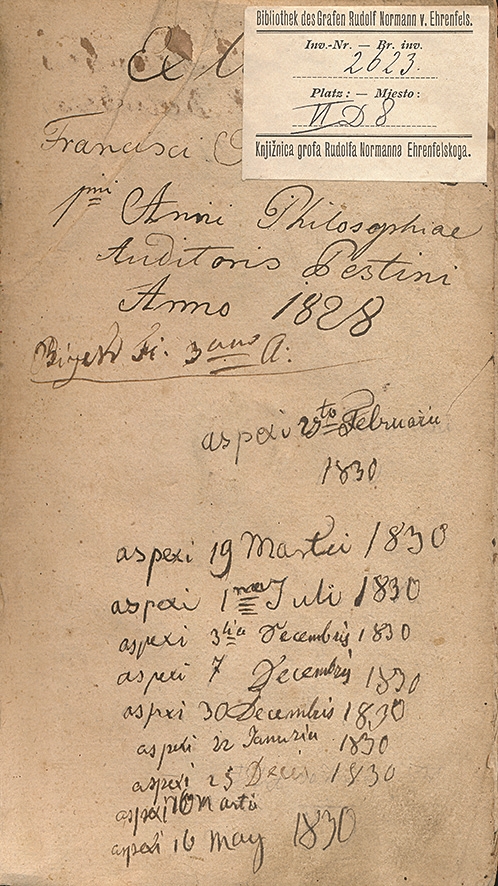 Ex
Bibliothek des Grafen Rudolf Normann v. Ehrenfels.
Inv.-Nr. — Br. inv.
2623.
Platz: — Mjesto:
VI D 8
Knjižnica grofa Rudolfa Normanna Ehrenfelskoga.
Francisci
1mi Anni Philosophiae
Auditoris Pestini
Anno 1828
3 A:
aspexi Februariu
1830
aspexi 19 Martii 1830
aspexi 1ma Juli 1830
aspexi 3tia Decembris 1830
aspexi 7 Decembris 1830
aspexi 30 Decembris 1830
aspexi 22 Januariu 1830
aspexi 25 1830
aspexi 16 Martii
aspexi 16 May 1830